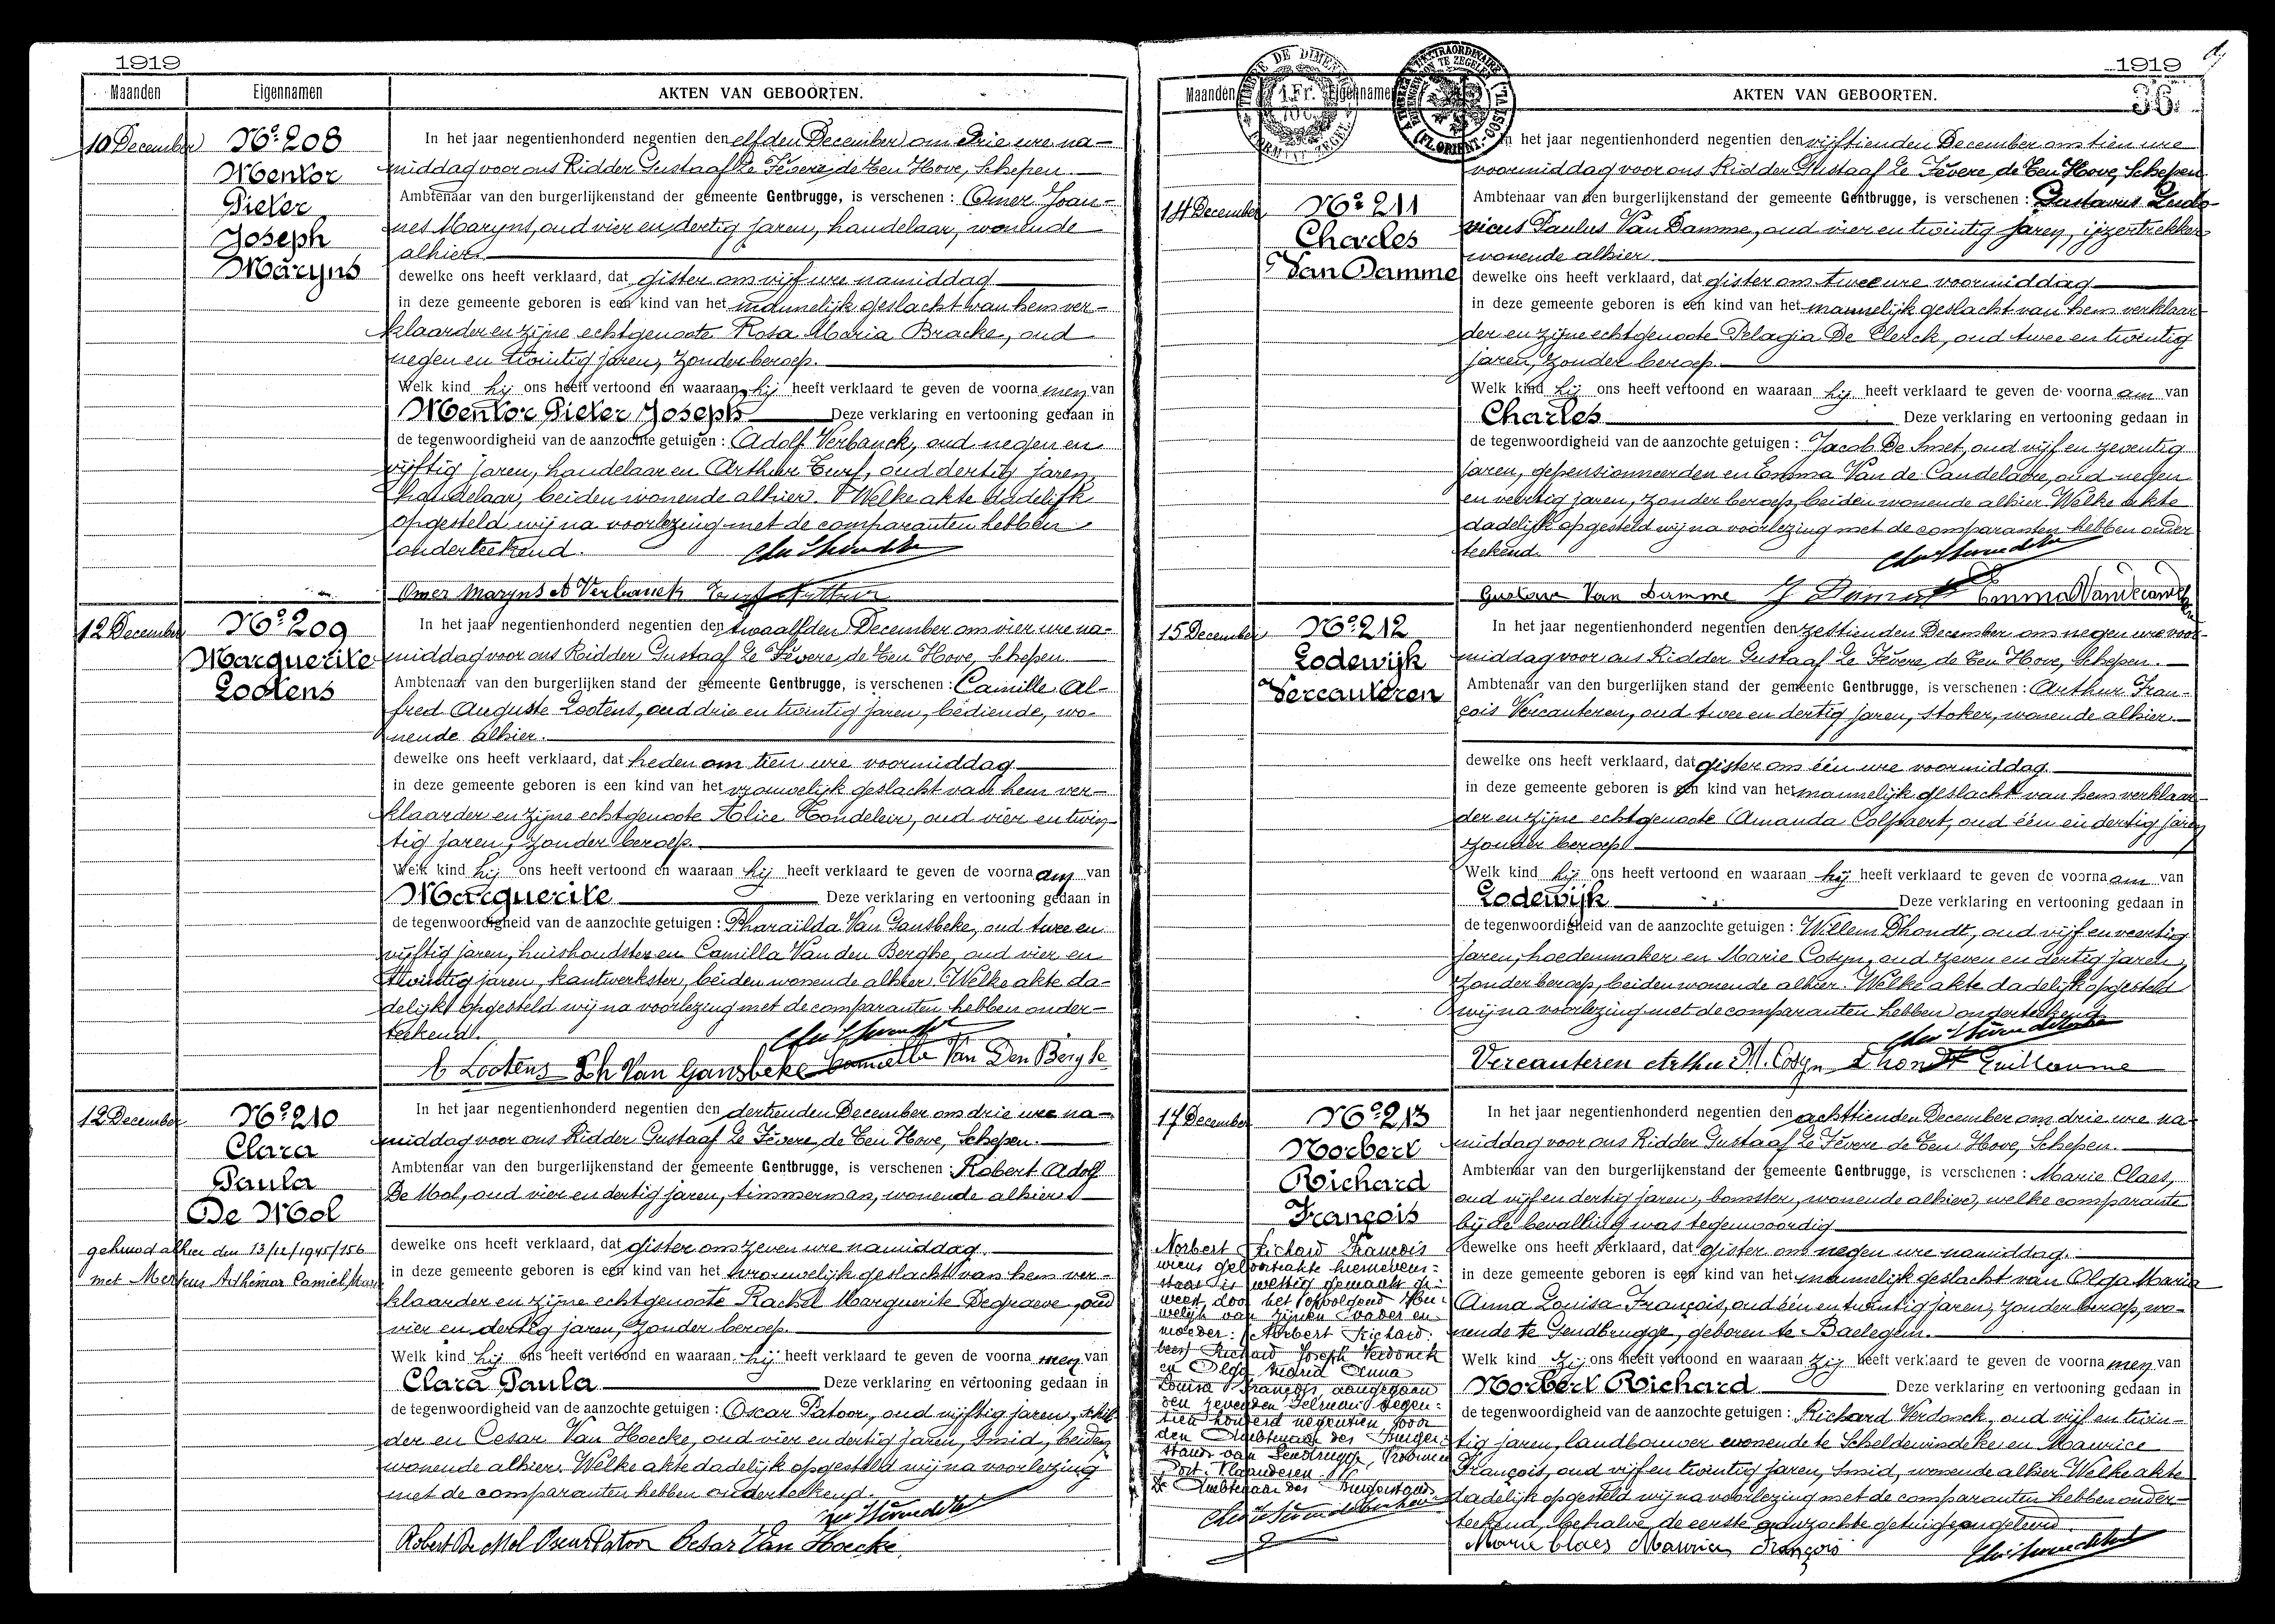 1919
Maanden Eigennamen AKTEN VAN GEBOORTEN.
10 December
Nº 208
Mentor
Pieter
Joseph
Maryns
In het jaar negentienhonderd negentien den elfden December om drie ure na-
middag voor ons Ridder Gustaaf Le Fèvere de Ten Hove, Schepen.
Ambtenaar van den burgerlijkenstand der gemeente Gentbrugge, is verschenen : Omer Joan-
nes Maryns, oud vier en dertig jaren, handelaar, wonende
alhier.
dewelke ons heeft verklaard, dat gister om vijf ure namiddag
in deze gemeente geboren is een kind van het mannelijk geslacht van hem ver-
klaarder en zijne echtgenoote Rosa Maria Bracke, oud
negen en twintig jaren, zonder beroep.
Welk kind hij ons heeft vertoond en waaraan hij heeft verklaard te geven de voorna men van
Mentor Pieter Joseph Deze verklaring en vertooning gedaan in
de tegenwoordigheid van de aanzochte getuigen : Adolf Verbanck, oud negen en
vijftig jaren, handelaar en Arthur Turf, oud dertig jaren,
handelaar, beiden wonende alhier. Welke akte dadelijk
opgesteld wij na voorlezing met de comparanten hebben
onderteekend.
Omer Maryns A Verbanck Turf Arthur
12 December
Nº 209
Marguerite
Lootens
In het jaar negentienhonderd negentien den twaalfden December om vier ure na-
middag voor ons Ridder Gustaaf Le Fèvere de Ten Hove, Schepen.
Ambtenaar van den burgerlijken stand der gemeente Gentbrugge, is verschenen : Camille Al-
fred Auguste Lootens, oud drie en twintig jaren, bediende, wo-
nende alhier.
dewelke ons heeft verklaard, dat heden om tien ure voormiddag
in deze gemeente geboren is een kind van het vrouwelijk geslacht van hem ver-
klaarder en zijne echtgenoote Alice Hondeleir, oud vier en twin-
tig jaren, zonder beroep.
Welk kind hij ons heeft vertoond en waaraan hij heeft verklaard te geven de voorna am van
Marguerite Deze verklaring en vertooning gedaan in
de tegenwoordigheid van de aanzochte getuigen : Pharaïlda Van Gansbeke, oud twee en
vijftig jaren, huishoudster en Camilla Van den Berghe, oud vier en
twintig jaren, kantwerkster, beiden wonende alhier. Welke akte da-
delijk opgesteld wij na voorlezing met de comparanten hebben onder-
teekend.
C Lootens Ph Van Gansbeke Camilla Van Den Berghe
12 December
Nº 210
Clara
Paula
De Mol
gehuwd alhier den 13/12/1945/156
met Mertens Adhémar Camiel
In het jaar negentienhonderd negentien den dertienden December om drie ure na-
middag voor ons Ridder Gustaaf Le Fèvere de Ten Hove, Schepen.
Ambtenaar van den burgerlijkenstand der gemeente Gentbrugge, is verschenen : Robert Adolf
De Mol, oud vier en dertig jaren, timmerman, wonende alhier
dewelke ons heeft verklaard, dat gister om zeven ure namiddag.
in deze gemeente geboren is een kind van het vrouwelijk geslacht van hem ver-
klaarder en zijne echtgenoote Rachel Marguerite Degraeve, oud
vier en dertig jaren, zonder beroep.
Welk kind hij ons heeft vertoond en waaraan hij heeft verklaard te geven de voorna men van
Clara Paula Deze verklaring en vertooning gedaan in
de tegenwoordigheid van de aanzochte getuigen : Oscar Patoor, oud vijftig jaren, schil-
der en Cesar Van Hoecke, oud vier en dertig jaren, smid, beiden
wonende alhier. Welke akte dadelijk opgesteld wij na voorlezing
met de comparanten hebben onderteekend.
Robert De Mol Oscar Patoor Cesar Van Hoecke
1919
36
Maanden Eigennamen AKTEN VAN GEBOORTEN.
14 December
Nº 211
Charles
Van Damme
In het jaar negentienhonderd negentien den vijftienden December om tien ure
voormiddag voor ons Ridder Gustaaf Le Fèvere de Ten Hove, Schepen.
Ambtenaar van den burgerlijkenstand der gemeente Gentbrugge, is verschenen : Gustavus Ludo-
vicus Paulus Van Damme, oud vier en twintig jaren, ijzertrekker
wonende alhier.
dewelke ons heeft verklaard, dat gister om twee ure voormiddag
in deze gemeente geboren is een kind van het mannelijk geslacht van hem verklaar-
der en zijne echtgenoote Pelagia De Clerck, oud twee en twintig
jaren, zonder beroep.
Welk kind hij ons heeft vertoond en waaraan hij heeft verklaard te geven de voorna am van
Charles Deze verklaring en vertooning gedaan in
de tegenwoordigheid van de aanzochte getuigen : Jacob De Smet, oud vijf en zeventig
jaren, gepensionneerden en Emma Van de Candelaere, oud negen
en veertig jaren, zonder beroep, beiden wonende alhier. Welke akte
dadelijk opgesteld wij na voorlezing met de comparanten hebben onder
teekend.
Gustave Van Damme
15 December
Nº 212
Lodewijk
Vercauteren
In het jaar negentienhonderd negentien den zestienden December om negen ure voor-
middag voor ons Ridder Gustaaf Le Fèvere de Ten Hove, Schepen.
Ambtenaar van den burgerlijken stand der gemeente Gentbrugge, is verschenen : Arthur Fran-
çois Vercauteren, oud twee en dertig jaren, stoker, wonende alhier.
dewelke ons heeft verklaard, dat gister om één ure voormiddag
in deze gemeente geboren is een kind van het mannelijk geslacht van hem verklaar-
der en zijne echtgenoote Amanda Colpaert, oud één en dertig jaren
zonder beroep
Welk kind hij ons heeft vertoond en waaraan hij heeft verklaard te geven de voorna am van
Lodewijk Deze verklaring en vertooning gedaan in
de tegenwoordigheid van de aanzochte getuigen : Willem Dhondt, oud vijf en veertig
jaren, hoedenmaker en Marie Cosyn, oud zeven en dertig jaren,
zonder beroep, beiden wonende alhier. Welke akte dadelijk opgesteld
wij na voorlezing met de comparanten hebben onderteekend
Vercauteren Arthur M. Cosyn Dhondt Guillaume
17 December
Nº 213
Norbert
Richard
François
Norbert Richard François
wiens geboorteakte hiernevens-
staat is wettig gemaakt ge-
weest door het opvolgend Hu-
welijk van zijnen vader en
moeder: Norbert Richard
Richard Joseph Verdonck
en Olga Maria Anna
Louisa François, aangegaan
den zevenden Februari negen-
tien honderd negentien voor
den Ambtenaar des Burger-
stands van Gendbrugge, Provincie
Oost-Vlaanderen.
De Ambtenaar des Burgerstands
In het jaar negentienhonderd negentien den achttienden December om drie ure na-
middag voor ons Ridder Gustaaf Le Fèvere de Ten Hove, Schepen.
Ambtenaar van den burgerlijkenstand der gemeente Gentbrugge, is verschenen : Marie Claes,
oud vijf en dertig jaren, bomster, wonende alhier, welke comparante
bij de bevalling was tegenwoordig
dewelke ons heeft verklaard, dat gister om negen ure namiddag.
in deze gemeente geboren is een kind van het mannelijk geslacht van Olga Maria
Anna Louisa François, oud één en twintig jaren, zonder beroep, wo-
nende te Gendbrugge, geboren te Baelegem.
Welk kind zij ons heeft vertoond en waaraan zij heeft verklaard te geven de voorna men van
Norbert Richard Deze verklaring en vertooning gedaan in
de tegenwoordigheid van de aanzochte getuigen : Richard Verdonck, oud vijf en twin-
tig jaren, landbouwer wonende te Scheldewindeke en Maurice
François, oud vijf en twintig jaren, smid, wonende alhier Welke akte
dadelijk opgesteld wij na voorlezing met de comparanten hebben onder-
teekend, behalve de eerste aanzochte getuige ongeleerd.
Marie Claes Maurice François